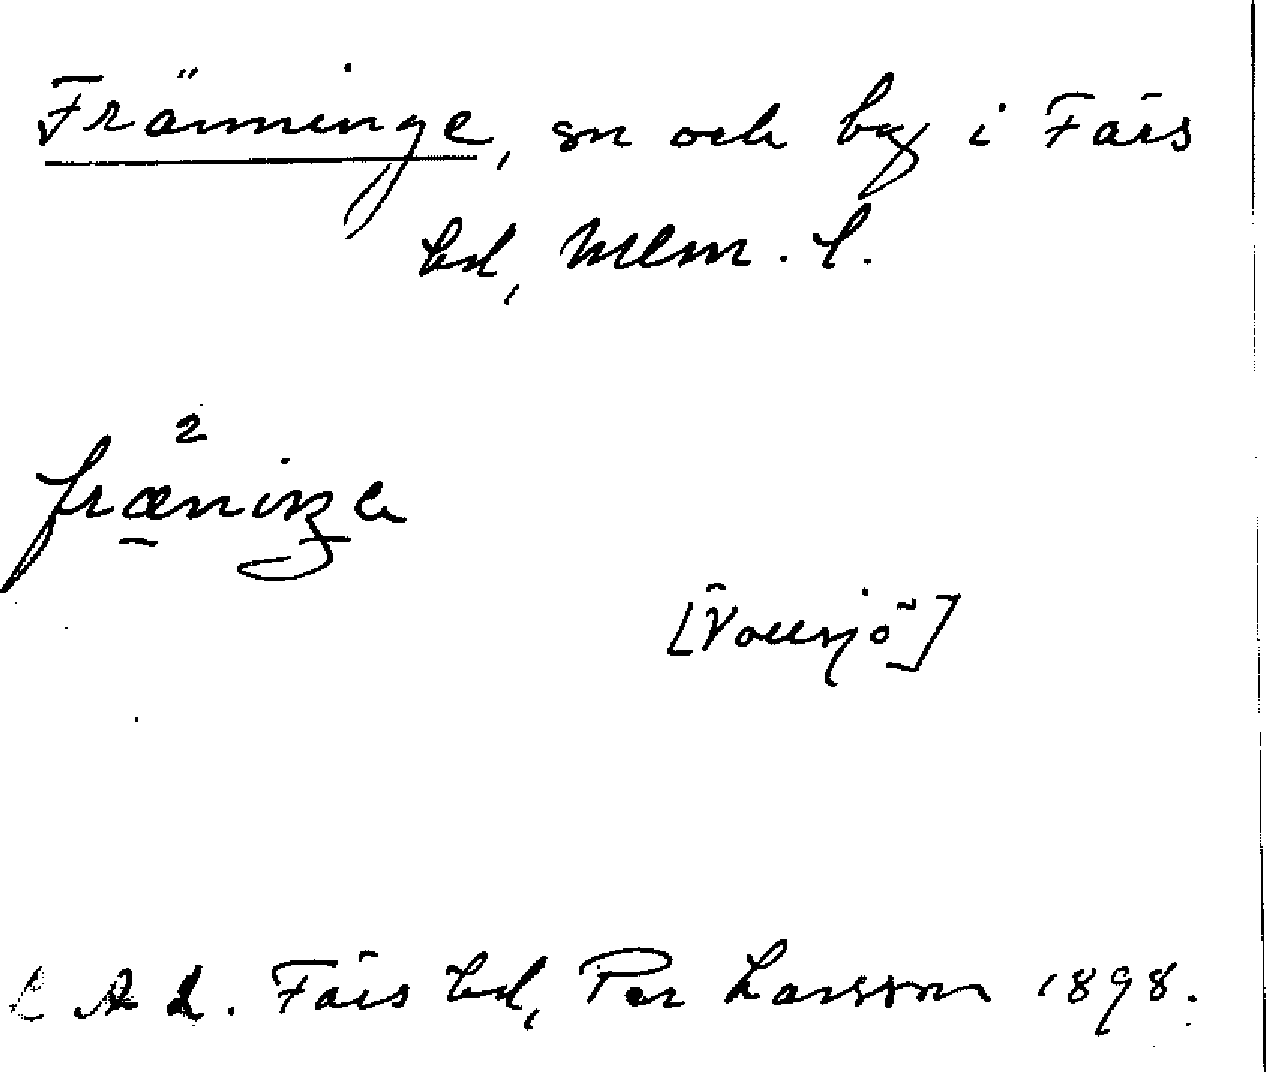 Fränninge, sn och by i Färs
hd, Mlm. l.
2
fræniŋa
[Vollsjö]
L A L. Färs hd, Per Larsson 1898.